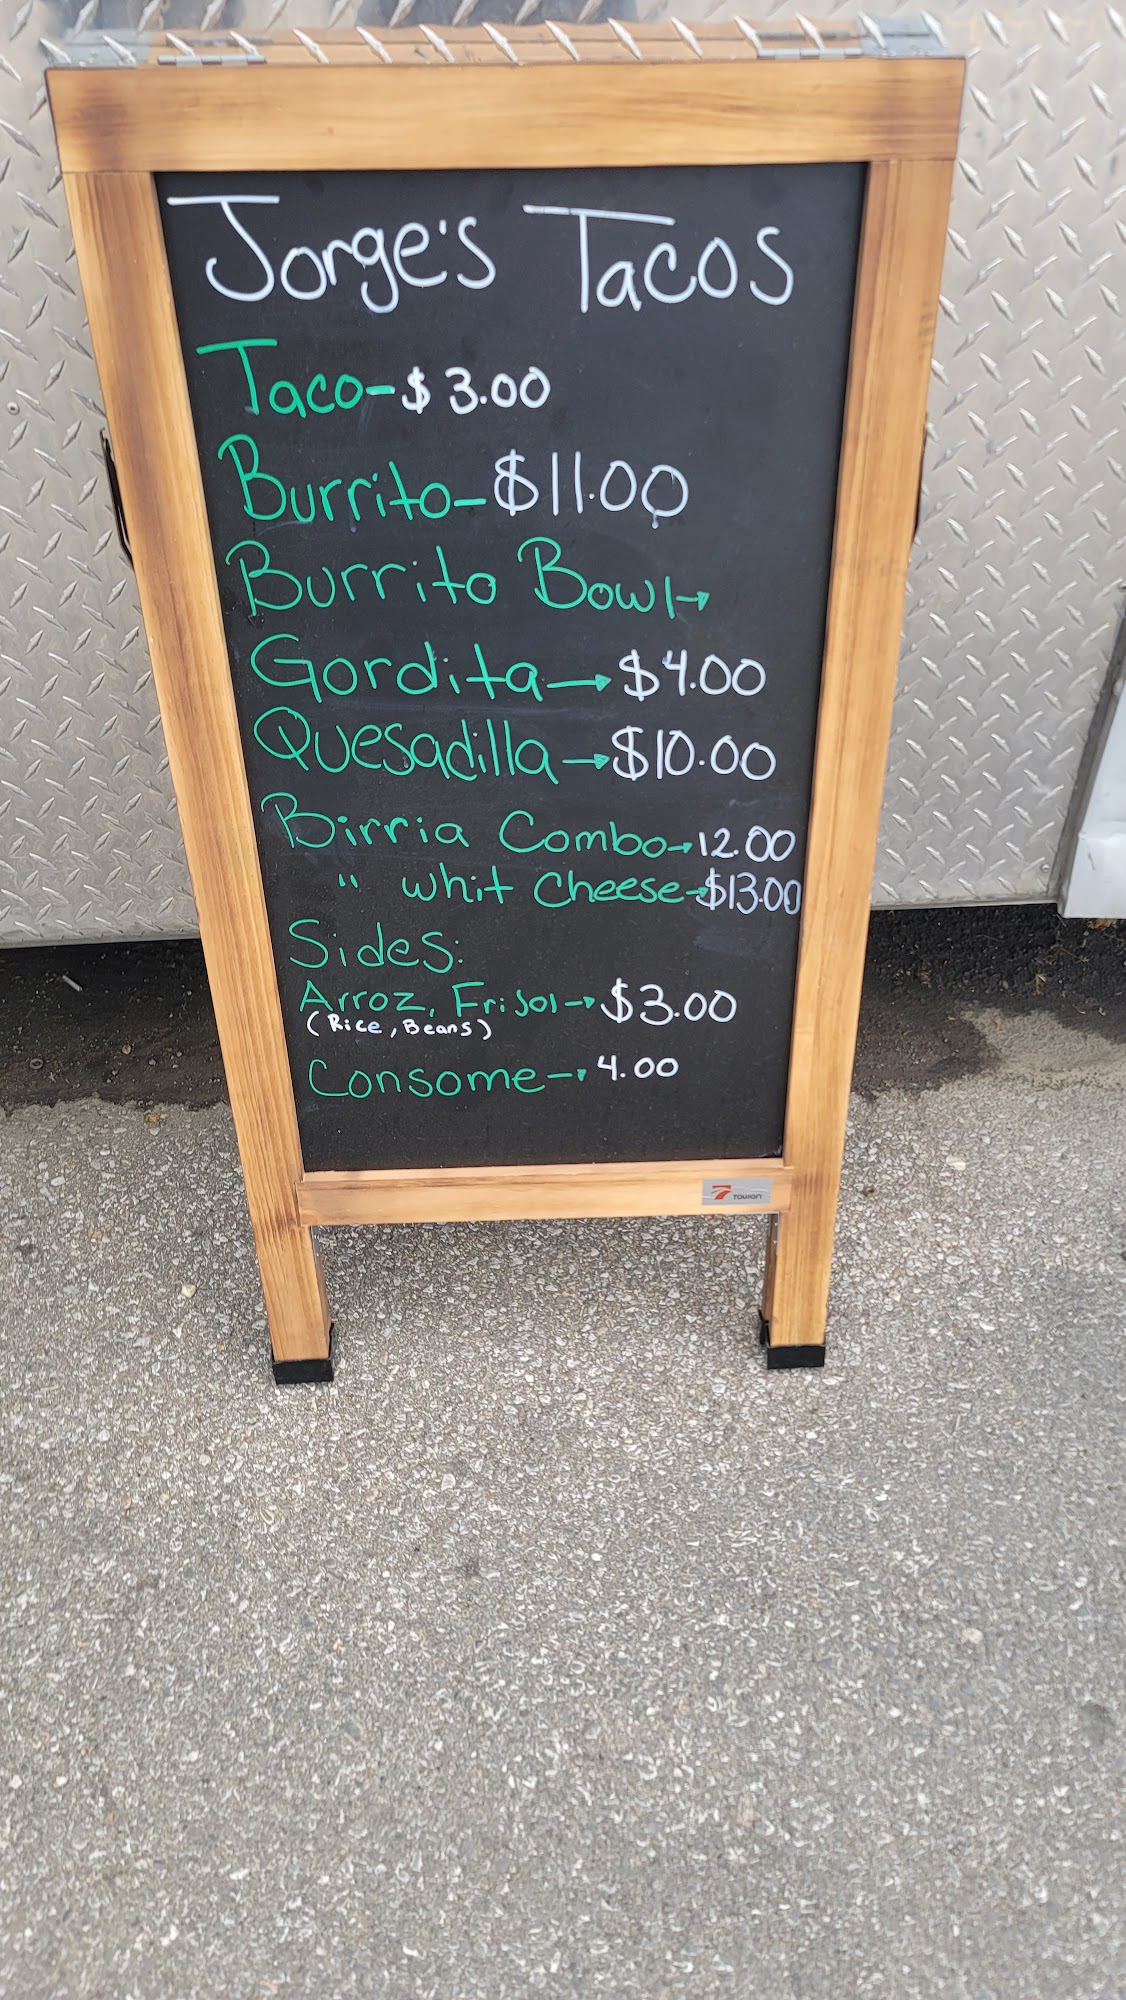 Jorge's Tacos
Taco-$3.00
Burrito-$11.00
Burrito Bowl→
Gordita→$4.00
Quesadilla→$10.00
Birria Combo→12.00
" whit Cheese→$13.00
Sides:
Arroz, Frisol→$3.00
(Rice, Beans)
Consome→4.00